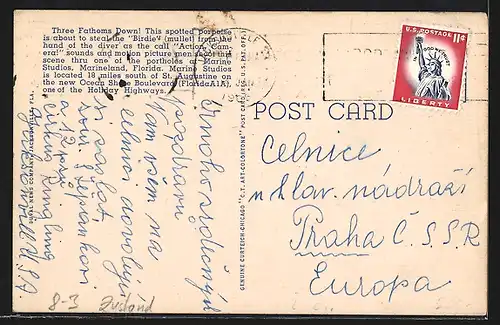 Three Fathoms Down! This spotted porpoise
is about to steal the "Birdie" (mullet) from the
hand of the diver as the call "Action, Cam-
era!" sounds and motion picture men shoot this
scene thru one of the portholes at Marine
Studios, Marineland, Florida. Marine Studios
is located 18 miles south of St. Augustine on
the new Ocean Shore Boulevard (Florida A1A),
one of the Holiday Highways.
GENUINE CURTEICH-CHICAGO "C.T. ART-COLORTONE" POST CARD (REG. U.S. PAT. OFF.)
U.S. POSTAGE 11¢
IN GOD WE TRUST
LIBERTY
POST CARD
Mnoho srdečných
pozdravů
Vám všem na
celnici dovolují
si zaslat
Cirkus Ringling
U.S.A
Celnice
na hlav. nádraží
Praha Č.S.S.R
Europa
8-3 Zustand